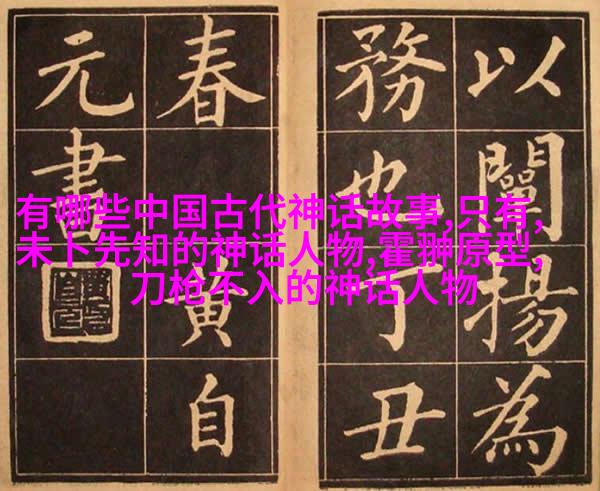 以闡揚為
務也丁丑
春黃自
元書
有哪些中国古代神话故事,只有,
未卜先知的神话人物,霍翀原型,
刀枪不入的神话人物